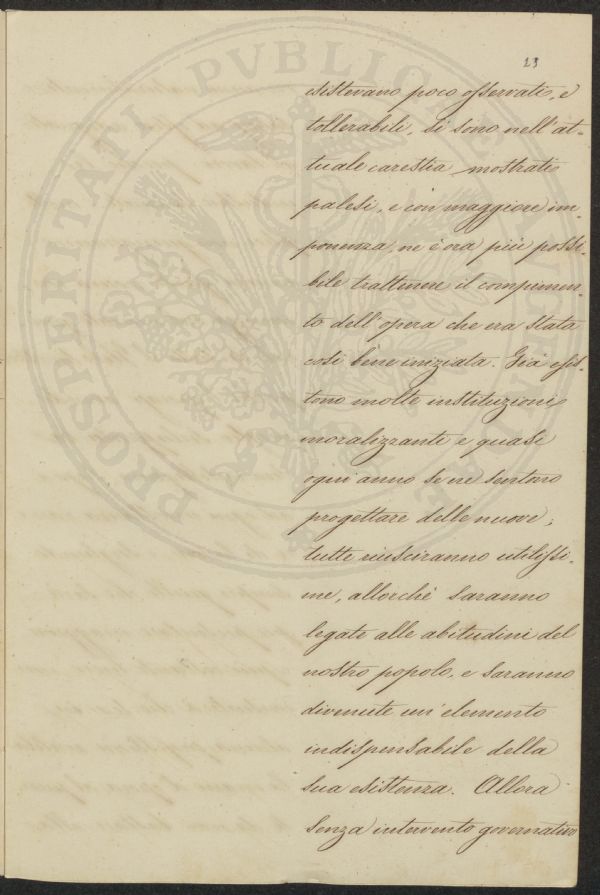 23
esistevano poco osservati, e
tollerabili, si sono nell'at-
tuale carestia mostrati
palesi, e con maggiore im-
ponenza, ne è ora più possi-
bile trattenere il compimen-
to dell'opera che era stata
così bene iniziata. Già esis-
tono molte instituzioni
moralizzanti e quasi
ogni anno se ne sentono
progettare delle nuove;
tutte riusciranno utilissi-
me, allorchè saranno
legate alle abitudini del
nostro popolo, e saranno
divenute un'elemento
indispensabile della
sua esistenza. Allora
senza intervento governativo
PROSPERITATI PUBLICAE